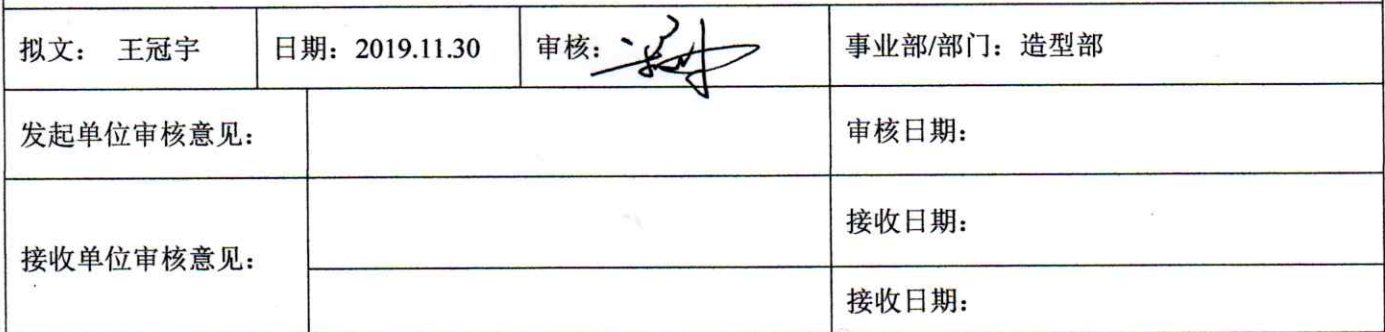 拟文： 王冠宇 日期：2019.11.30 审核： 事业部/部门：造型部
发起单位审核意见： 审核日期：
接收单位审核意见： 接收日期：
接收日期：